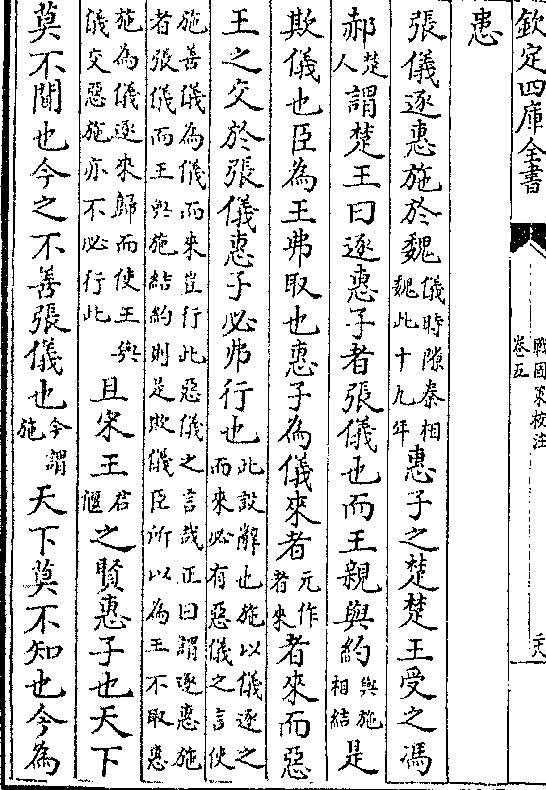 欽定四庫全書
戰國策校注
卷五
二六
患
張儀逐惠施於魏儀時隙秦相魏此十九年惠子之楚楚王受之馮
郝楚人謂楚王曰逐惠子者張儀也而王親與約與施相結是
欺儀也臣為王弗取也惠子為儀來者元作者來者來而惡
王之交於張儀惠子必弗行也此設辭也施以儀逐之而來必有惡儀之言使
施善儀為儀而來豈行此惡儀之言哉正曰謂逐惠施者張儀而王與施結約則是欺儀臣所以為王不取惠
施為儀逐來歸而使王與儀交惡施亦不必行此且宋王君偃之賢惠子也天下
莫不聞也今之不善張儀也今謂施天下莫不知也今為